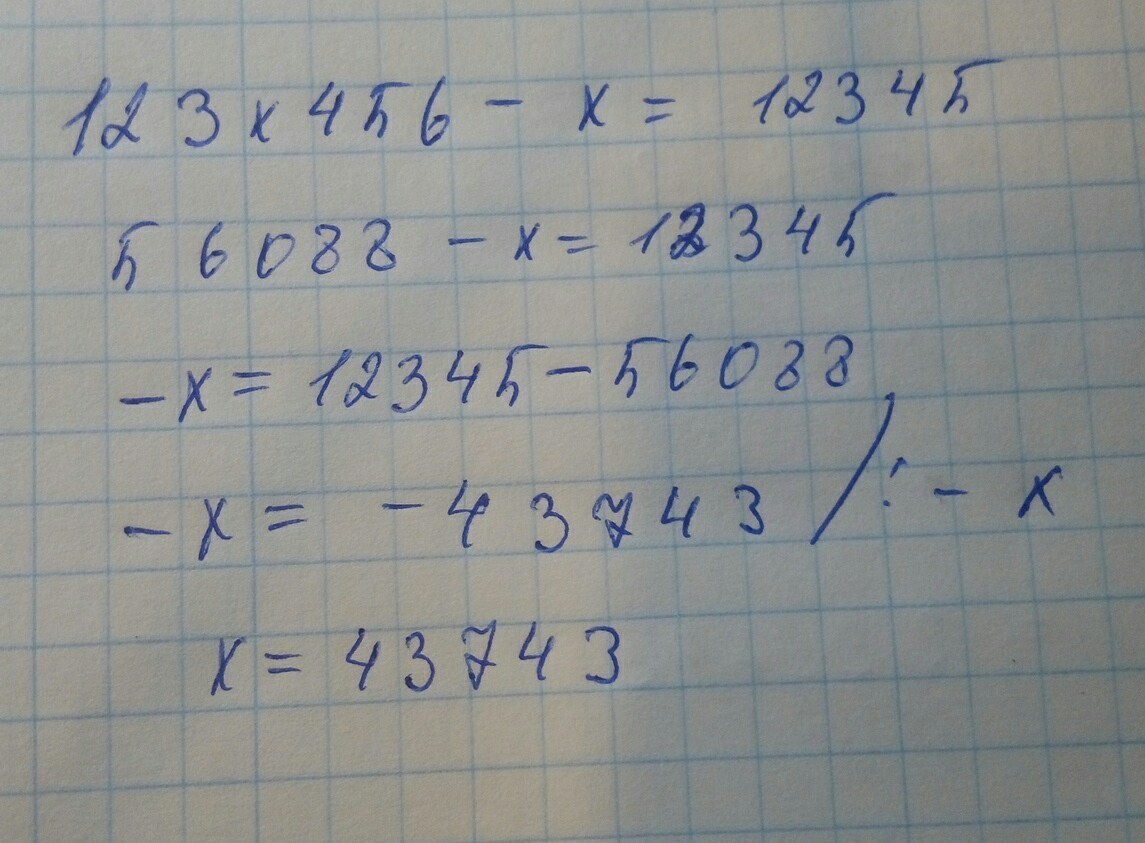 123 x 456 - x = 12345
56088 - x = 12345
-x = 12345 - 56088
-x = -43743 /: - x
x = 43743